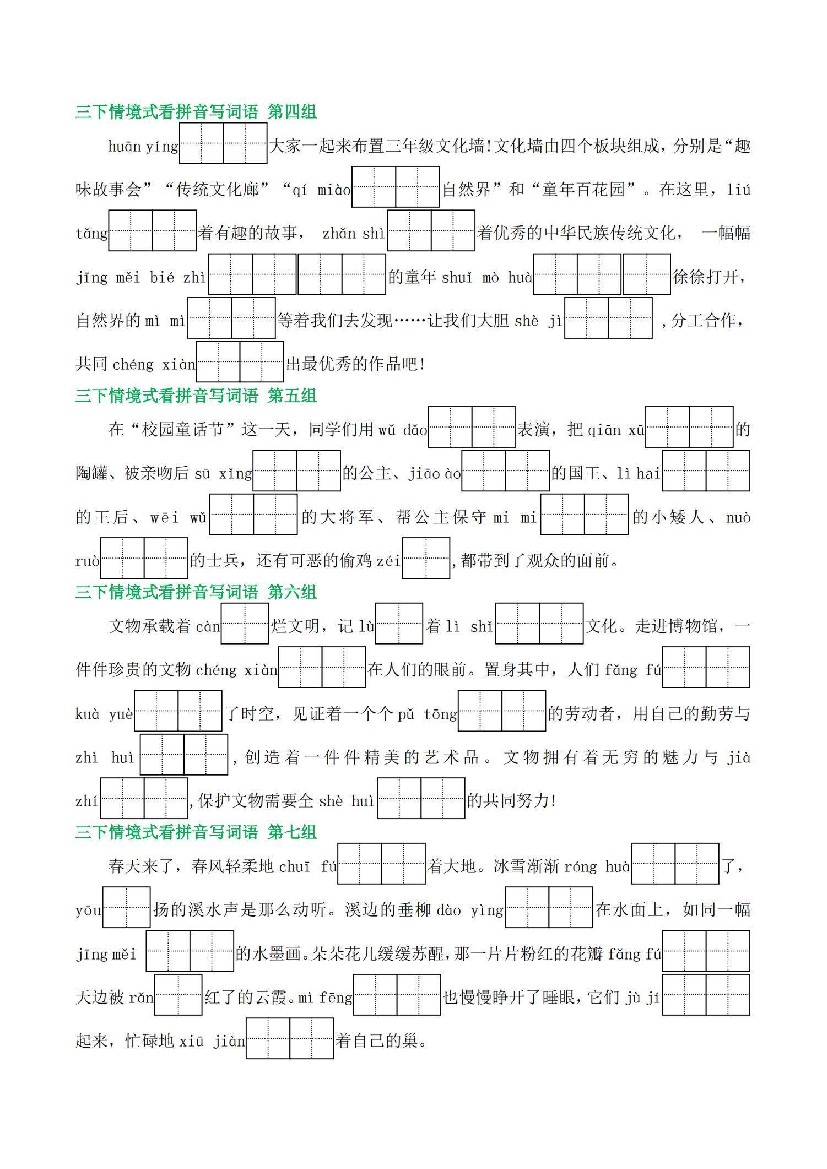 三下情境式看拼音写词语 第四组
huān yíng 大家一起来布置三年级文化墙！文化墙由四个板块组成，分别是“趣
味故事会”“传统文化廊”“qí miào 自然界”和“童年百花园”。在这里，liú
tǎng 着有趣的故事， zhǎn shì 着优秀的中华民族传统文化， 一幅幅
jīng měi bié zhì 的童年 shuǐ mò huà 徐徐打开，
自然界的 mì mì 等着我们去发现……让我们大胆 shè jì ,分工合作，
共同 chéng xiàn 出最优秀的作品吧！
三下情境式看拼音写词语 第五组
在“校园童话节”这一天，同学们用 wǔ dǎo 表演，把 qiān xū 的
陶罐、被亲吻后 sū xǐng 的公主、jiāo ào 的国王、lì hai
的王后、wēi wǔ 的大将军、帮公主保守 mì mì 的小矮人、nuò
ruò 的士兵，还有可恶的偷鸡 zéi ,都带到了观众的面前。
三下情境式看拼音写词语 第六组
文物承载着 càn 烂文明，记 lù 着 lì shǐ 文化。走进博物馆，一
件件珍贵的文物 chéng xiàn 在人们的眼前。置身其中，人们 fǎng fú
kuà yuè 了时空，见证着一个个 pǔ tōng 的劳动者，用自己的勤劳与
zhì huì ,创造着一件件精美的艺术品。文物拥有着无穷的魅力与 jià
zhí ,保护文物需要全 shè huì 的共同努力！
三下情境式看拼音写词语 第七组
春天来了，春风轻柔地 chuī fú 着大地。冰雪渐渐 róng huà 了，
yōu 扬的溪水声是那么动听。溪边的垂柳 dào yìng 在水面上，如同一幅
jīng měi 的水墨画。朵朵花儿缓缓苏醒，那一片片粉红的花瓣 fǎng fú
天边被 rǎn 红了的云霞。mì fēng 也慢慢睁开了睡眼，它们 jù jí
起来，忙碌地 xiū jiàn 着自己的巢。